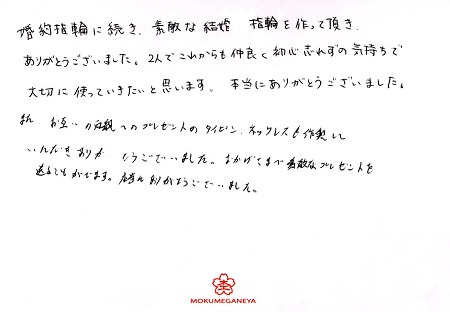 婚約指輪に続き、素敵な結婚 指輪を作って頂き、
ありがとうございました。2人でこれからも仲良く初心忘れずの気持ちで
大切に使っていきたいと思います。本当にありがとうございました。
また、お互いの両親へのプレゼントのタイピン、ネックレスも作製して
いただきありがとうございました。おかげさまで素敵なプレゼントを
送ることができます。本当にありがとうございました。
MOKUMEGANEYA